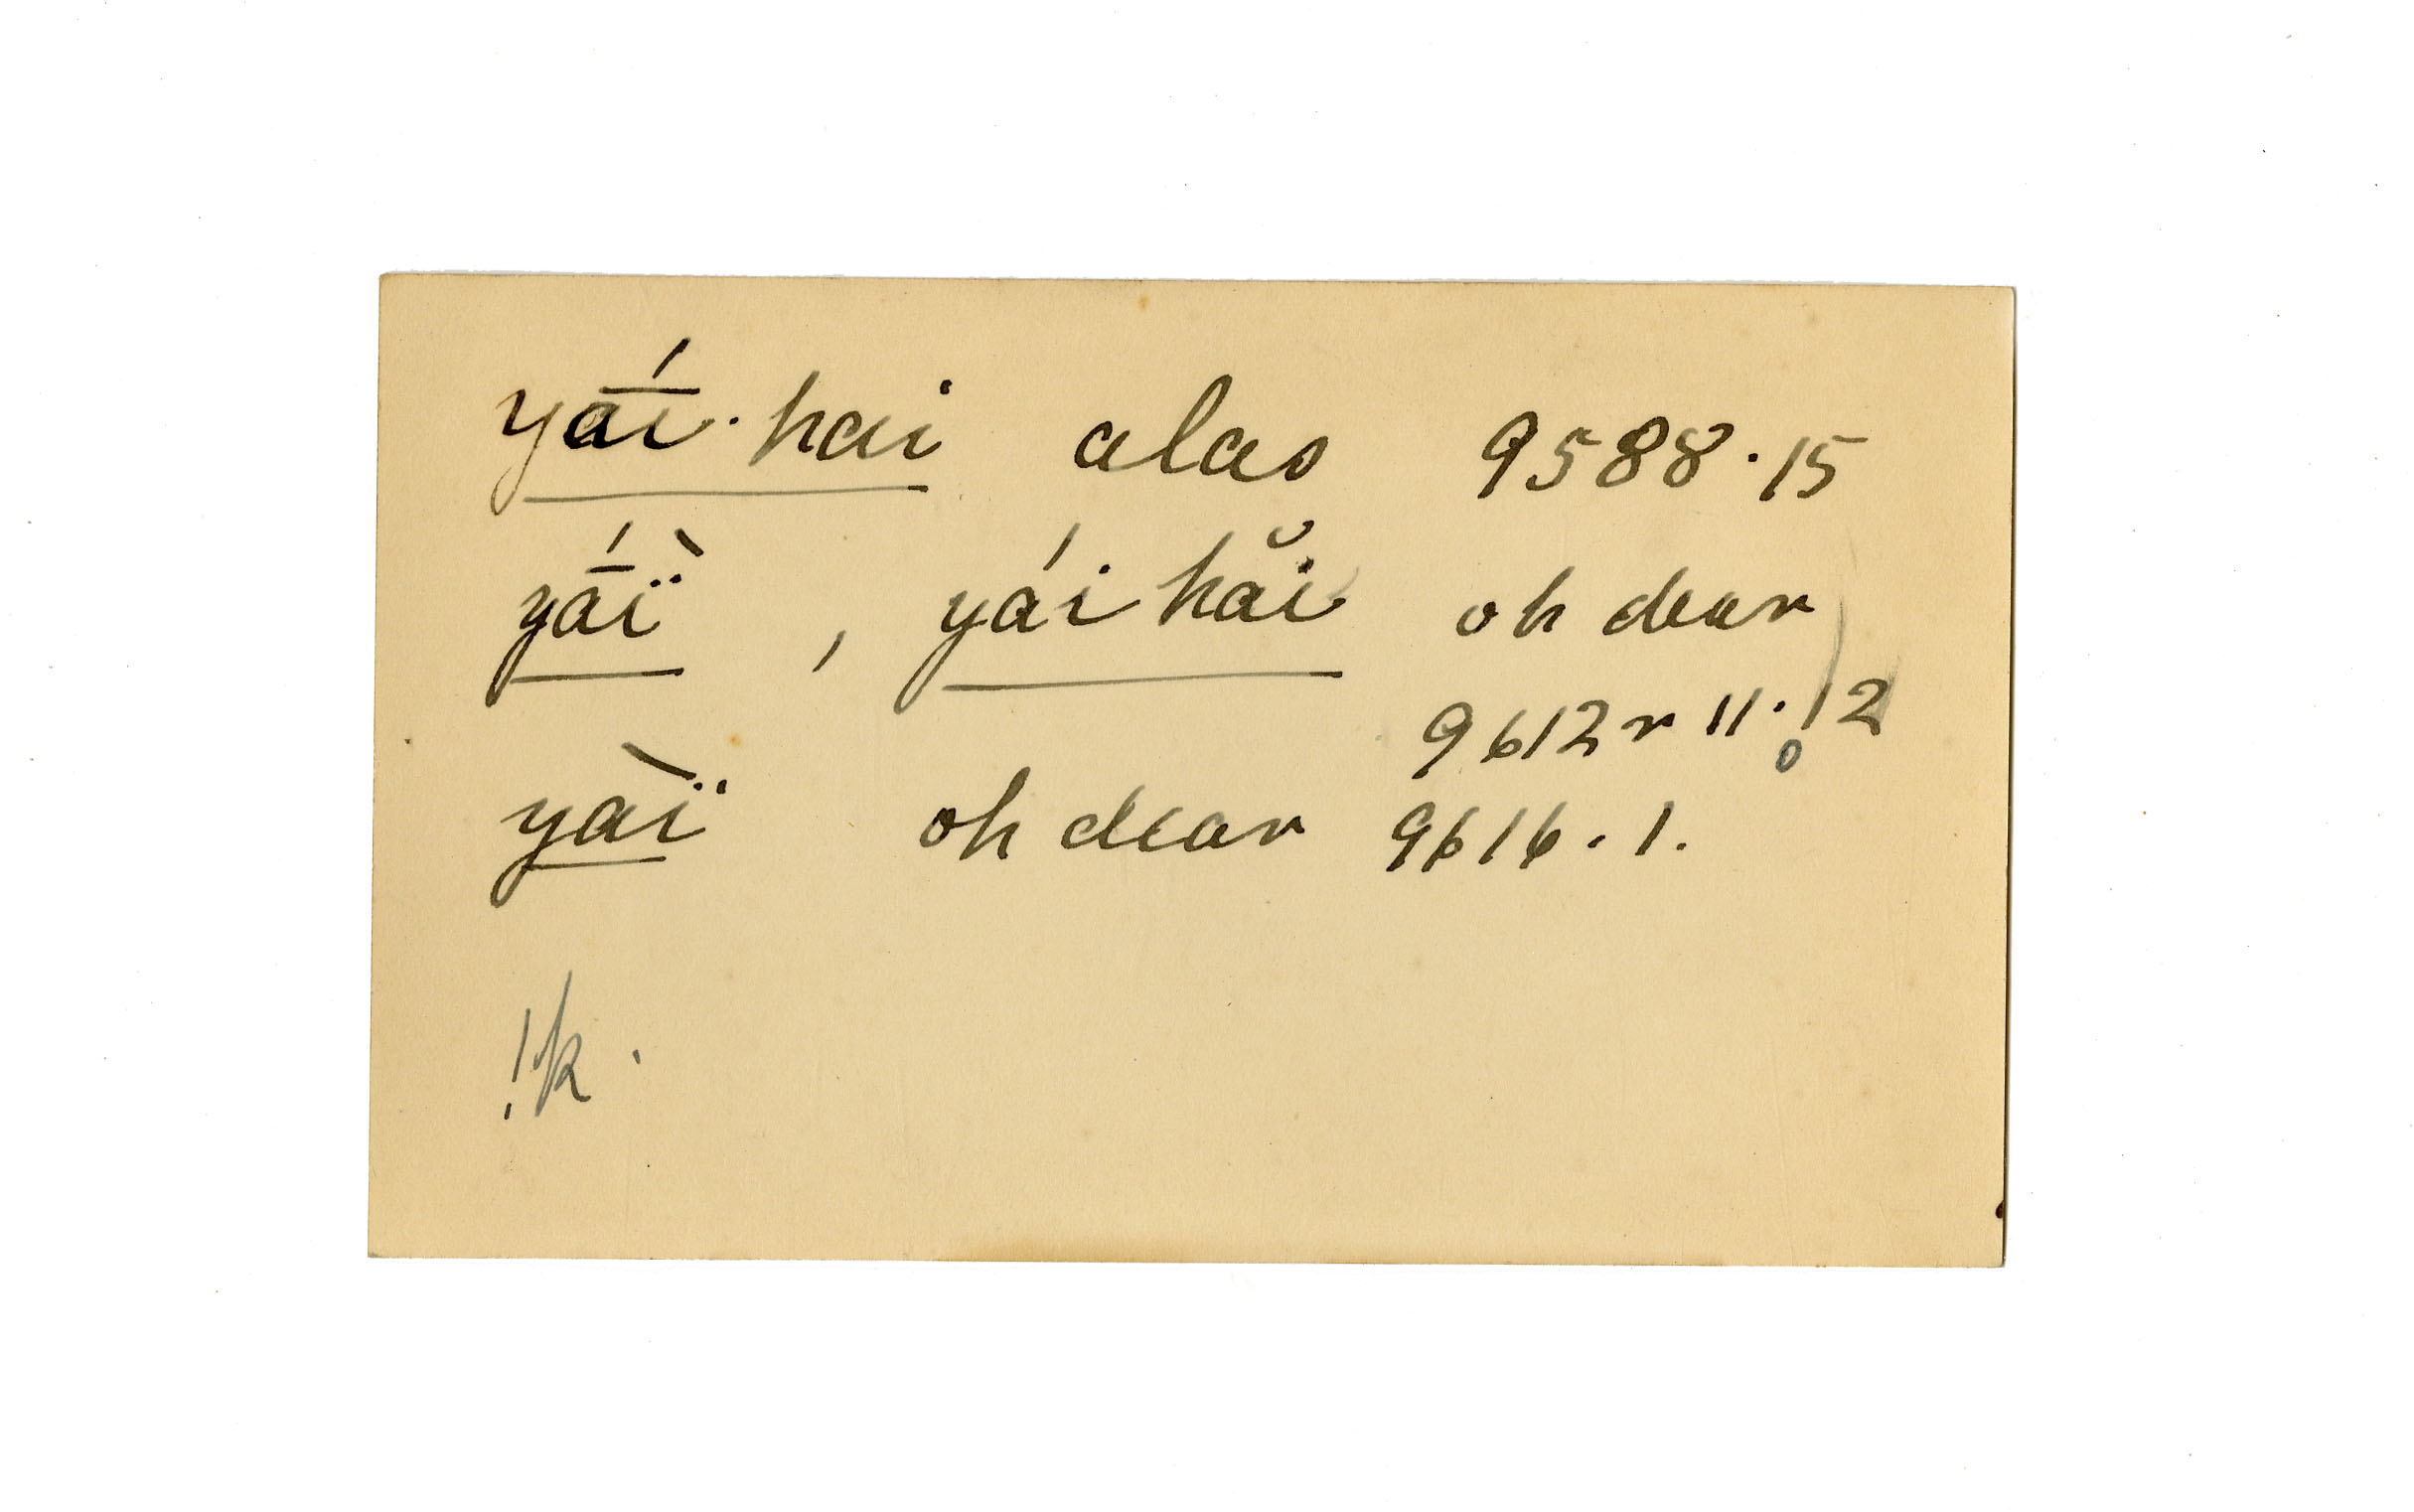 yā́i·hai alas 9588.15
yā́ï̀ , yái hăi oh dear
9612 r 11.12
yàï oh dear 9616.1.
!k.